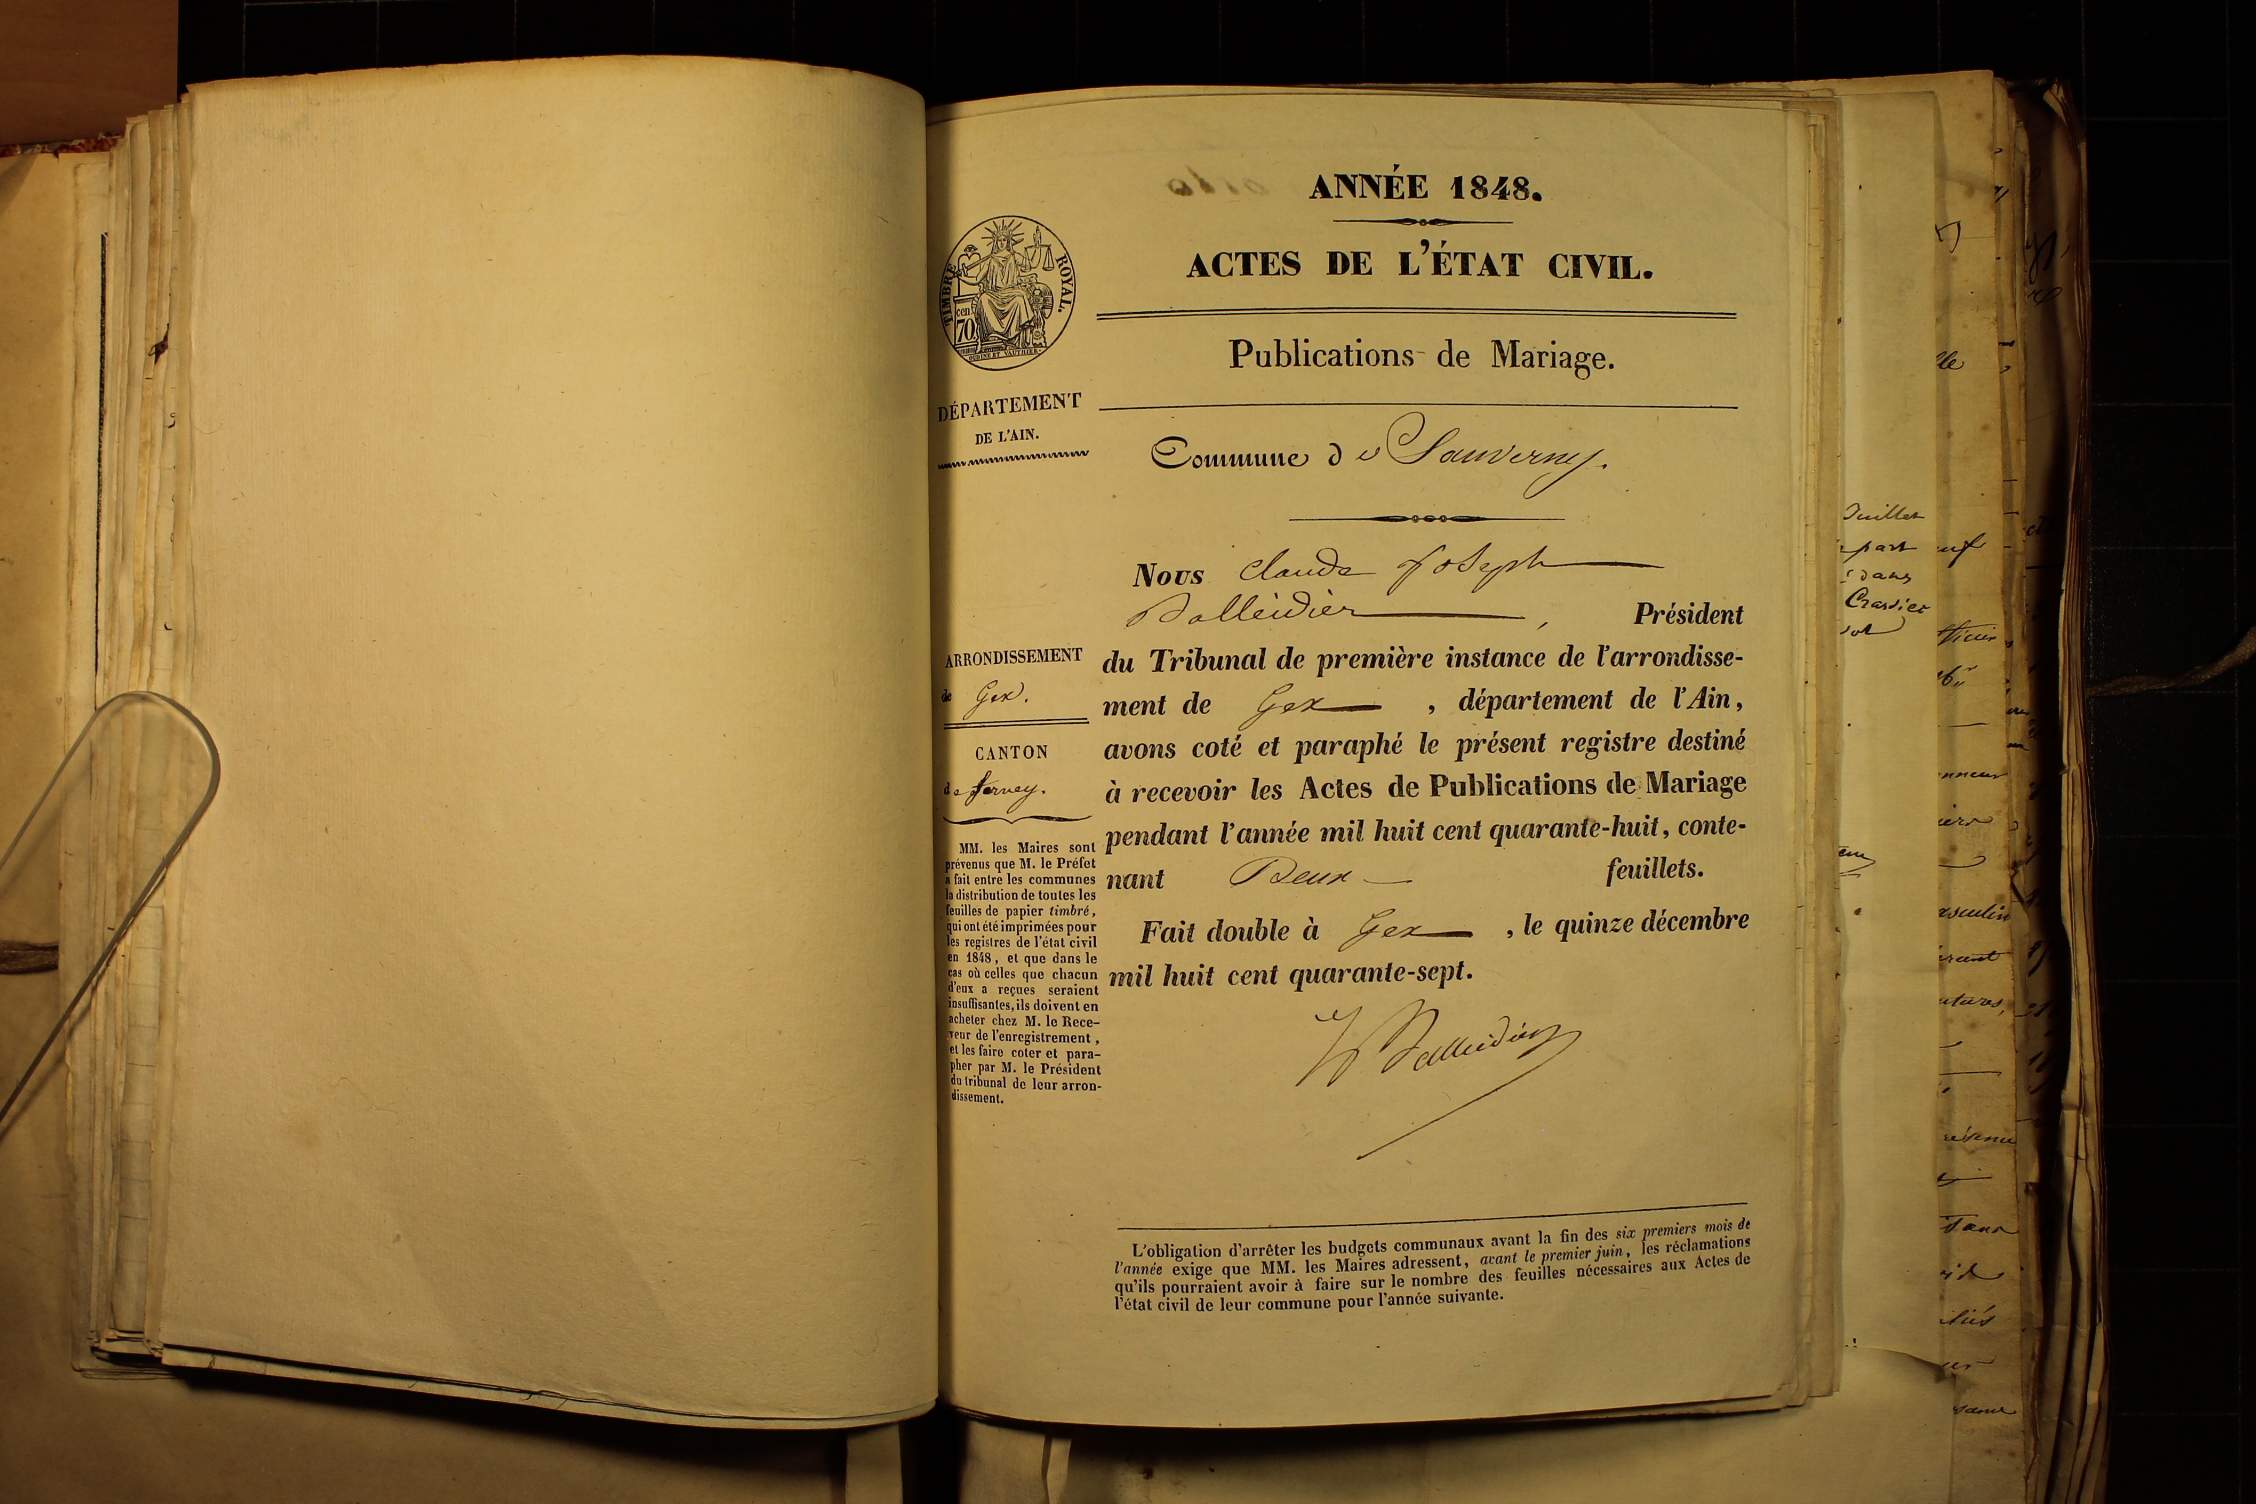 ANNÉE 1848.
ACTES DE L'ÉTAT CIVIL.
Publications de Mariage.
TIMBRE ROYAL.
cen.
70
OUDINÉ ET VAUTHIER
DÉPARTEMENT
DE L'AIN.
Commune de Sauverny.
Nous Claude Joseph
Balleidier, Président
du Tribunal de première instance de l'arrondisse-
ment de Gex, département de l'Ain,
avons coté et paraphé le présent registre destiné
à recevoir les Actes de Publications de Mariage
pendant l'année mil huit cent quarante-huit, conte-
nant Deux feuillets.
Fait double à Gex, le quinze décembre
mil huit cent quarante-sept.
Balleidier
ARRONDISSEMENT
de Gex.
CANTON
de Ferney.
MM. les Maires sont
prévenus que M. le Préfet
a fait entre les communes
la distribution de toutes les
feuilles de papier timbré,
qui ont été imprimées pour
les registres de l'état civil
en 1848, et que dans le
cas où celles que chacun
d'eux a reçues seraient
insuffisantes, ils doivent en
acheter chez M. le Rece-
veur de l'enregistrement,
et les faire coter et para-
pher par M. le Président
du tribunal de leur arron-
dissement.
L'obligation d'arrêter les budgets communaux avant la fin des six premiers mois de
l'année exige que MM. les Maires adressent, avant le premier juin, les réclamations
qu'ils pourraient avoir à faire sur le nombre des feuilles nécessaires aux Actes de
l'état civil de leur commune pour l'année suivante.
Juillet
part
dans
Crassier